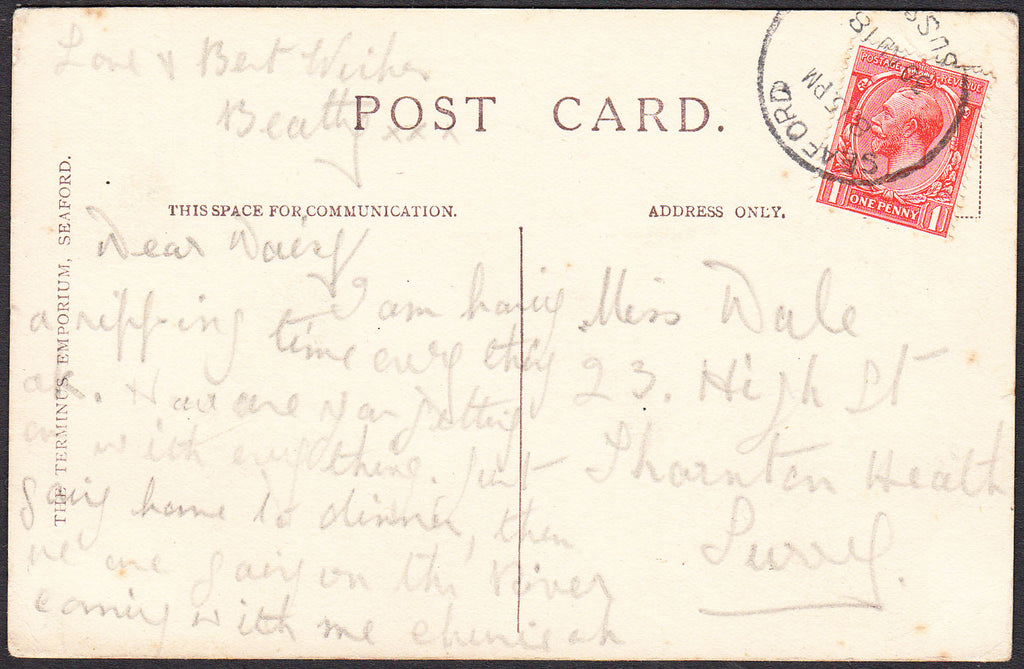 Love & Best Wishes
Beatty xxx
POST CARD.
THIS SPACE FOR COMMUNICATION.
ADDRESS ONLY.
THE TERMINUS EMPORIUM, SEAFORD.
Dear Daisy
I am having
a ripping time every thing
ok. How are you getting
on with everything. Just
going home to dinner, then
we are going on the River
coming with me
Miss Dale
23. High St
Thornton Heath
Surrey.
SEAFORD
6.15 PM
18
POSTAGE REVENUE
1 ONE PENNY 1